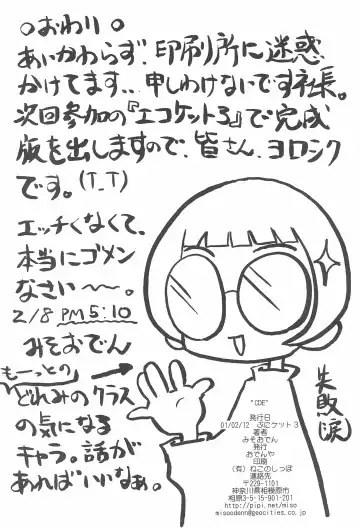 ○おわり○
あいかわらず、印刷所に迷惑
かけてます、、申しわけないです社長。
次回参加の『エコケット3』で完成
版を出しますので、皆さん、ヨロシク
です。(T_T)
エッチくなくて、
本当にゴメン
なさい〜〜。
2/8 PM5:10
みそおでん
もーっとの
どれみのクラス
の気になる
キャラ。話が
あればいいなぁ。
失敗涙
"CDE"
発行日
01/02/12 ぷにケット3
著者
みそおでん
発行
おでんや
印刷
(有)ねこのしっぽ
連絡先
〒229-1101
神奈川県相模原市
相原3-5-15-901-201
http://pipi.net/miso
misooden@geocities.co.jp